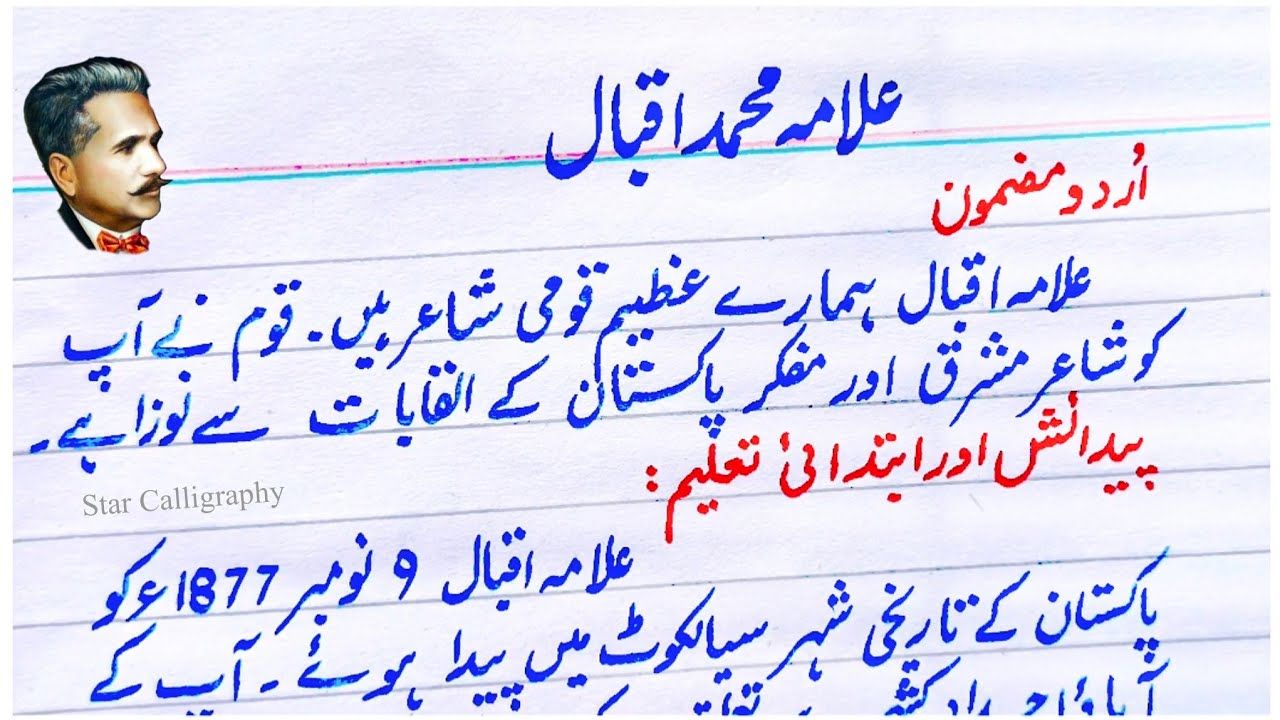 علامہ محمد اقبال
اُردو مضمون
علامہ اقبال ہمارے عظیم قومی شاعر ہیں۔ قوم نے آپ
کو شاعر مشرق اور مفکر پاکستان کے القابات سے نوازا ہے۔
پیدائش اور ابتدائی تعلیم:
Star Calligraphy
علامہ اقبال 9 نومبر 1877ء کو
پاکستان کے تاریخی شہر سیالکوٹ میں پیدا ہوئے۔ آپ کے